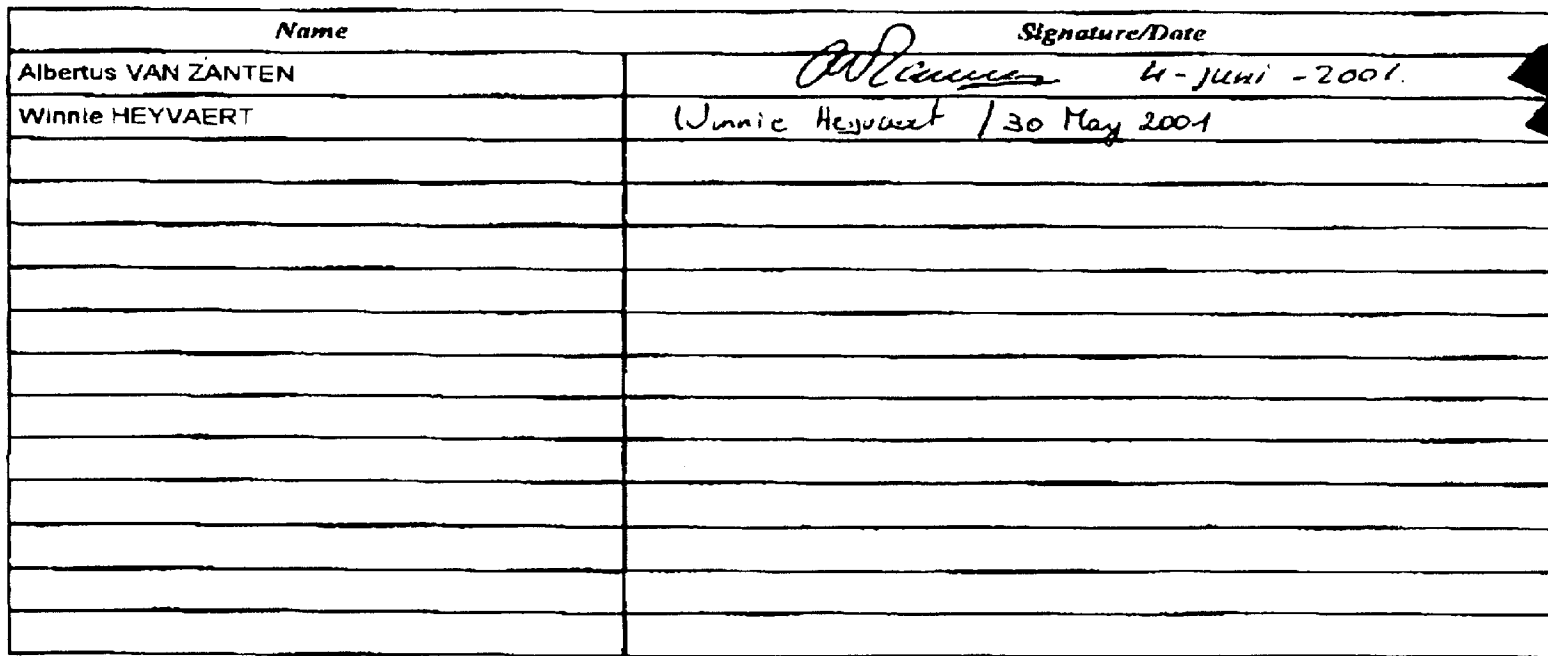 Name Signature/Date
Albertus VAN ZANTEN 4-juni-2001.
Winnie HEYVAERT Winnie Heyvaert / 30 May 2001